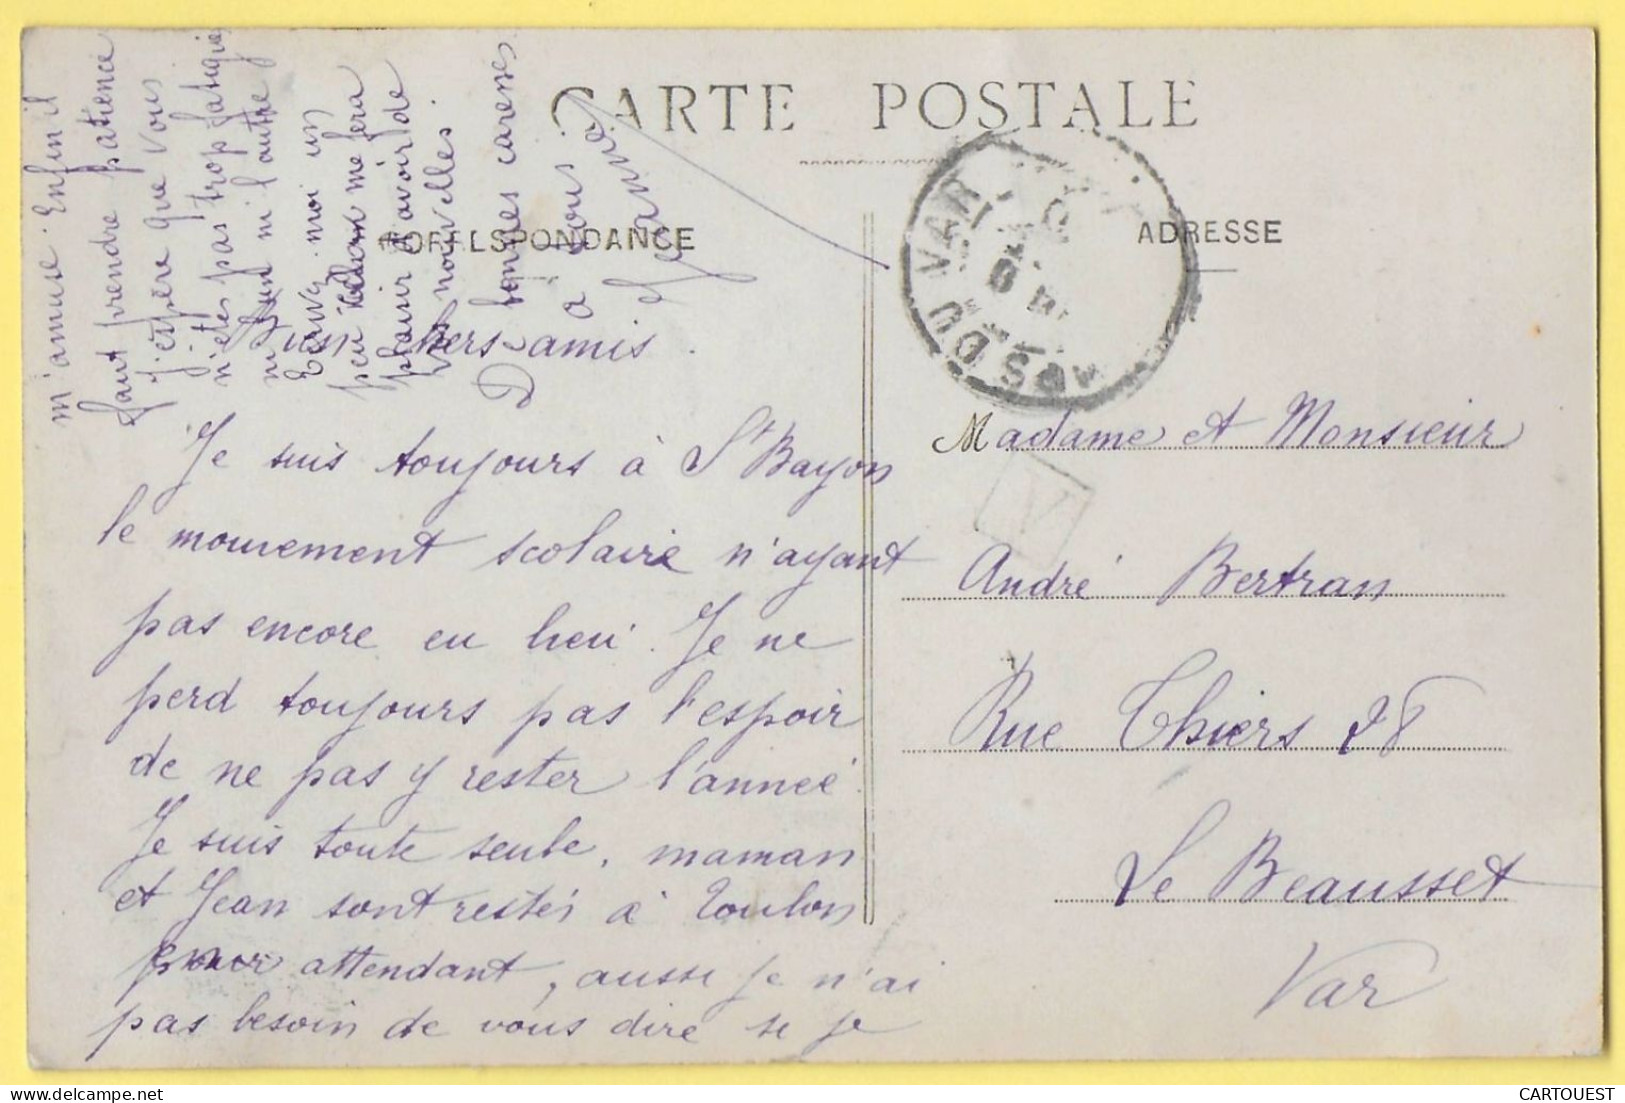 CARTE POSTALE
CORRESPONDANCE
ADRESSE
DU VAR
Bien chers amis.
Je suis toujours à St Bayon
le mouvement scolaire n'ayant
pas encore eu lieu. Je ne
perd toujours pas l'espoir
de ne pas y rester l'année.
Je suis toute seule, maman
et Jean sont restés à Toulon
attendant, aussi je n'ai
pas besoin de vous dire si je
m'amuse. Enfin il
faut prendre patience
J'espère que vous
n'êtes pas trop fatigués
ni l'un ni l'autre
Ecrivez moi un
peu me fera
plaisir d'avoir de
vos nouvelles.
Bonnes caresses
à vous
Jeanne
Madame et Monsieur
André Bertran
Rue Thiers 28
Le Beausset
Var
CARTOUEST